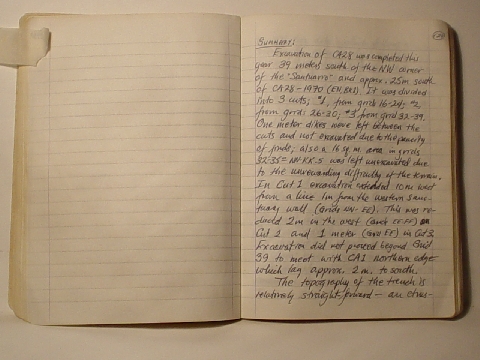 Summary:
Excavation of CA28 was completed this
year 39 meters south of the NW corner
of the "Santuario" and approx. 25m south
of CA28-1970 (EN, BKS). It was divided
into 3 cuts; #1, from grids 16-24; #2,
from grids 26-30; #3 from grid 32-39.
One meter dikes were left between the
cuts and not excavated due to the paucity
of finds; also a 16 sq. m. area in grids
32-35 = was left unexcavated due
to the unrewarding difficulty of the terrain.
In Cut 1 excavation extended 10m west
from a line 1m from the western sanc-
tuary wall (grids NN-EE). This was re-
duced 2m in the west (grid EE-FF) in
Cut 2 and 1 meter (grid EE) in Cut 3.
Excavation did not proceed beyond Grid
39 to meet with CA1 northern edge
which lay approx. 2m. to south.
The topography of the trench is
relatively straight-forward — an